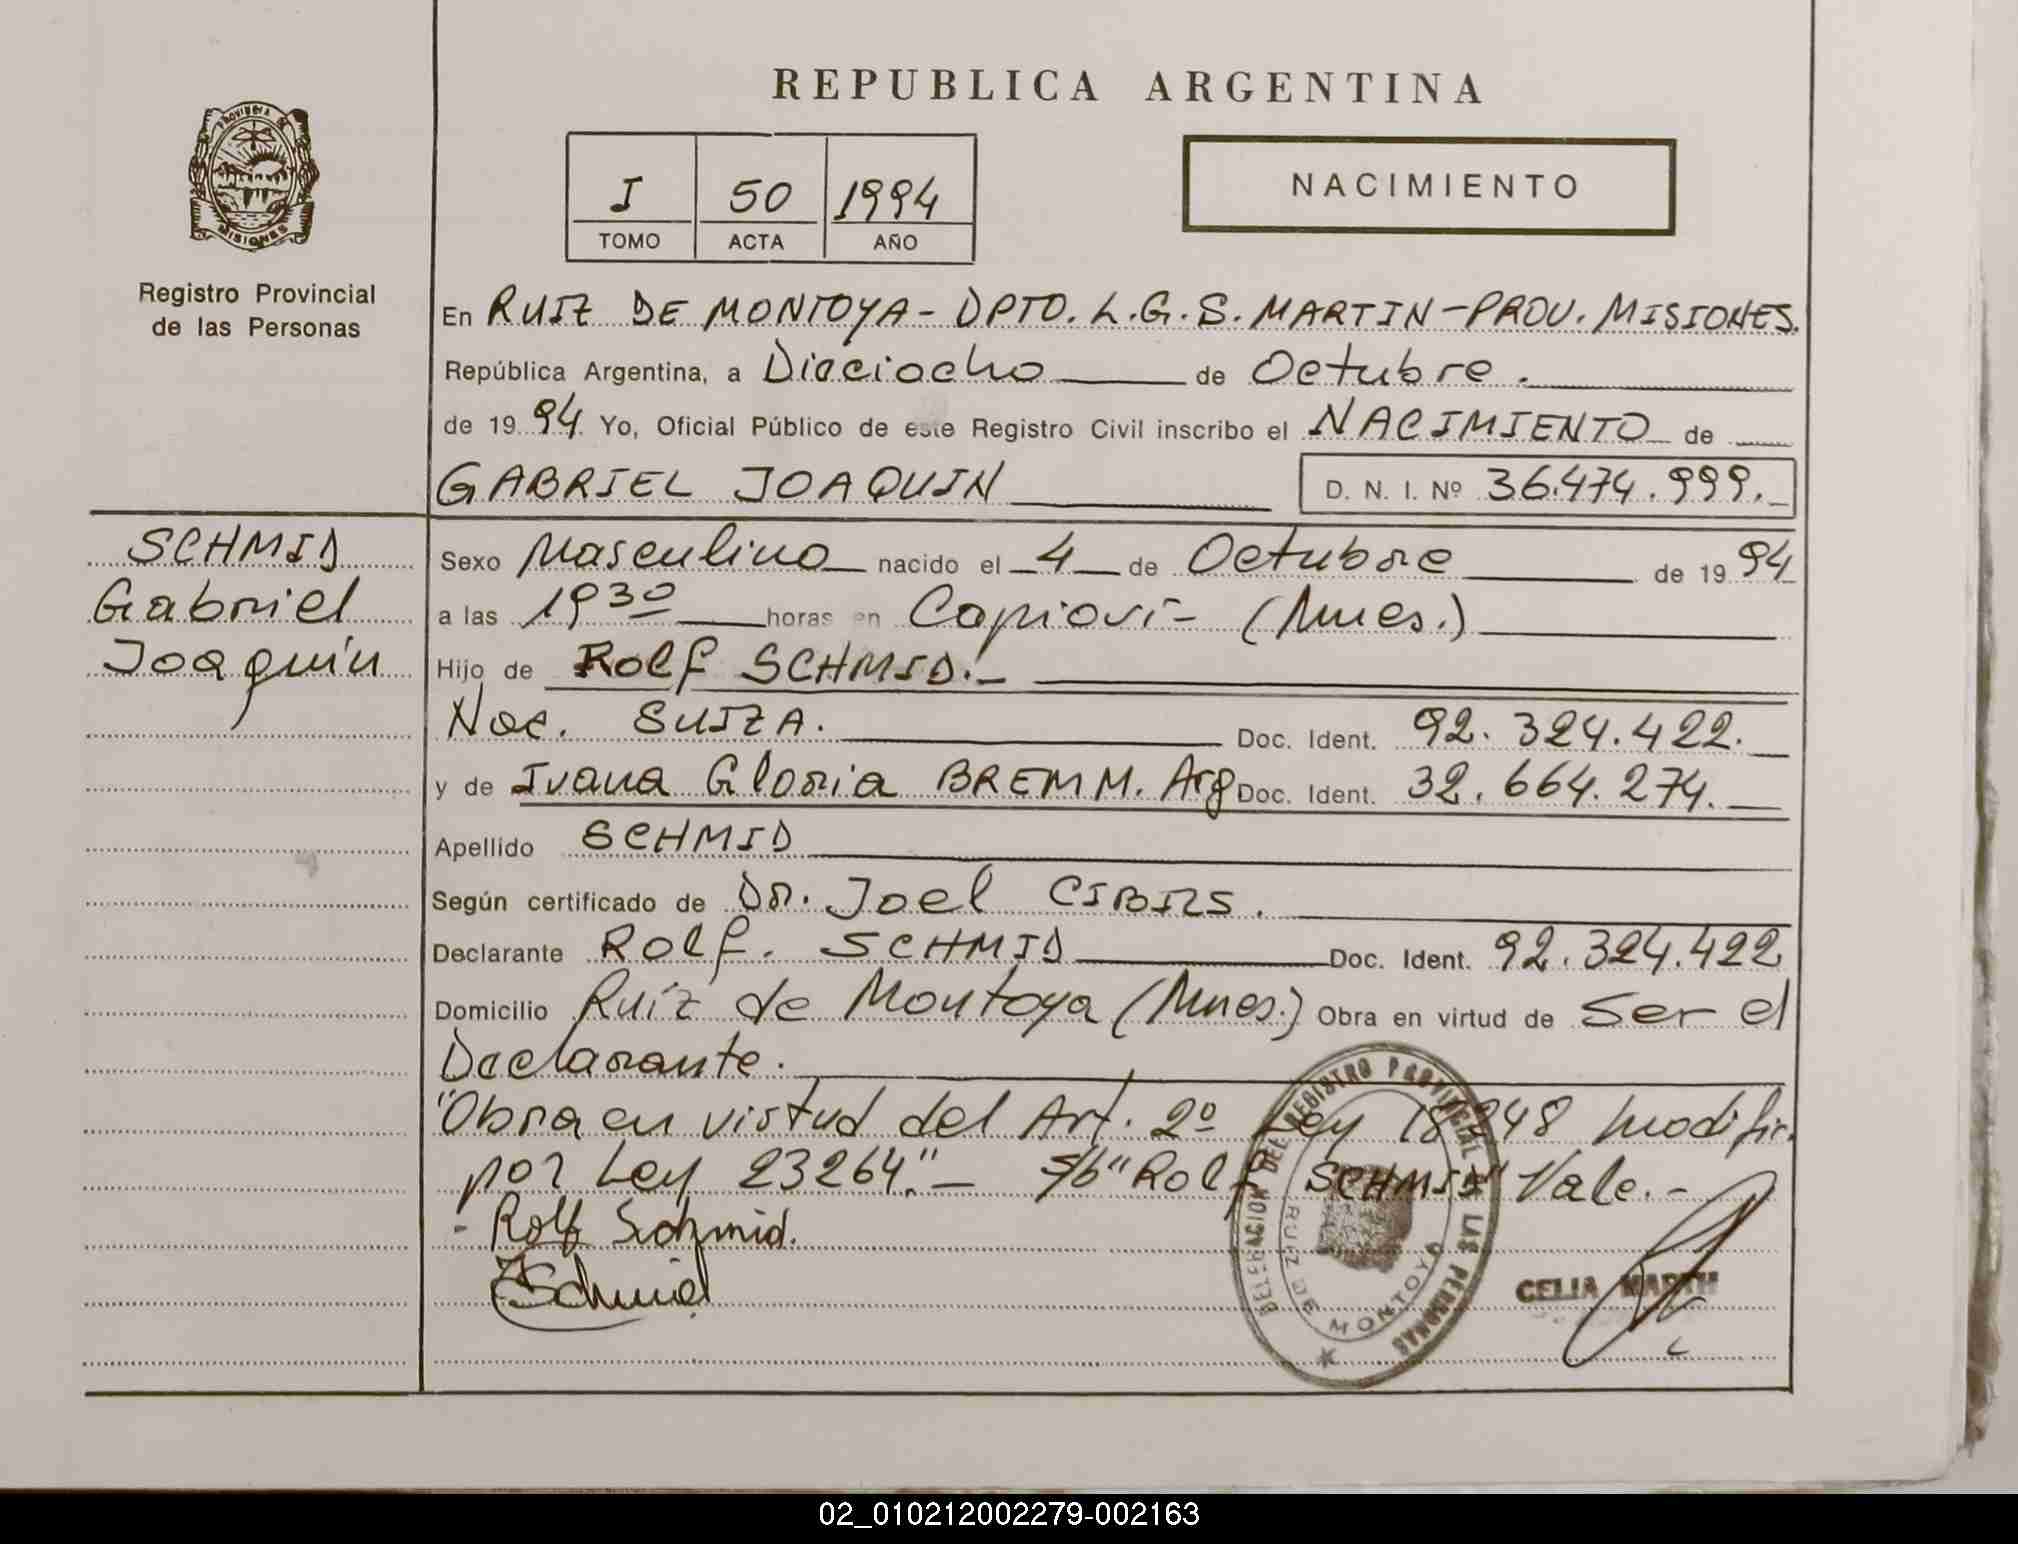 REPUBLICA ARGENTINA
PROVINCIA DE
MISIONES
I 50 1994
TOMO ACTA AÑO
NACIMIENTO
Registro Provincial
de las Personas
En RUIZ DE MONTOYA - DPTO. L.G.S. MARTIN - PROV. MISIONES.
República Argentina, a Dieciocho de Octubre.
de 1994 Yo, Oficial Público de este Registro Civil inscribo el NACIMIENTO de
GABRIEL JOAQUIN D. N. I. Nº 36.474.999.
SCHMID
Gabriel
Joaquín
Sexo Masculino nacido el 4 de Octubre de 1994
a las 19 30 horas en Capioví - (Mnes.)
Hijo de Rolf SCHMID.-
Nac. SUIZA. Doc. Ident. 92.324.422.
y de Ivana Gloria BREMM. Arg Doc. Ident. 32.664.274.
Apellido SCHMID
Según certificado de Dr. Joel CIBILS.
Declarante Rolf. SCHMID Doc. Ident. 92.324.422
Domicilio Ruíz de Montoya (Mnes.) Obra en virtud de Ser el
Declarante.
"Obra en virtud del Art. 2º Ley 18248 modific.
por Ley 23264".- S/b "Rolf SCHMID" Vale.-
- Rolf Schmid.
Schmid
DELEGACION DEL REGISTRO PROVINCIAL DE LAS PERSONAS
RUIZ DE MONTOYA
CELIA
02_010212002279-002163